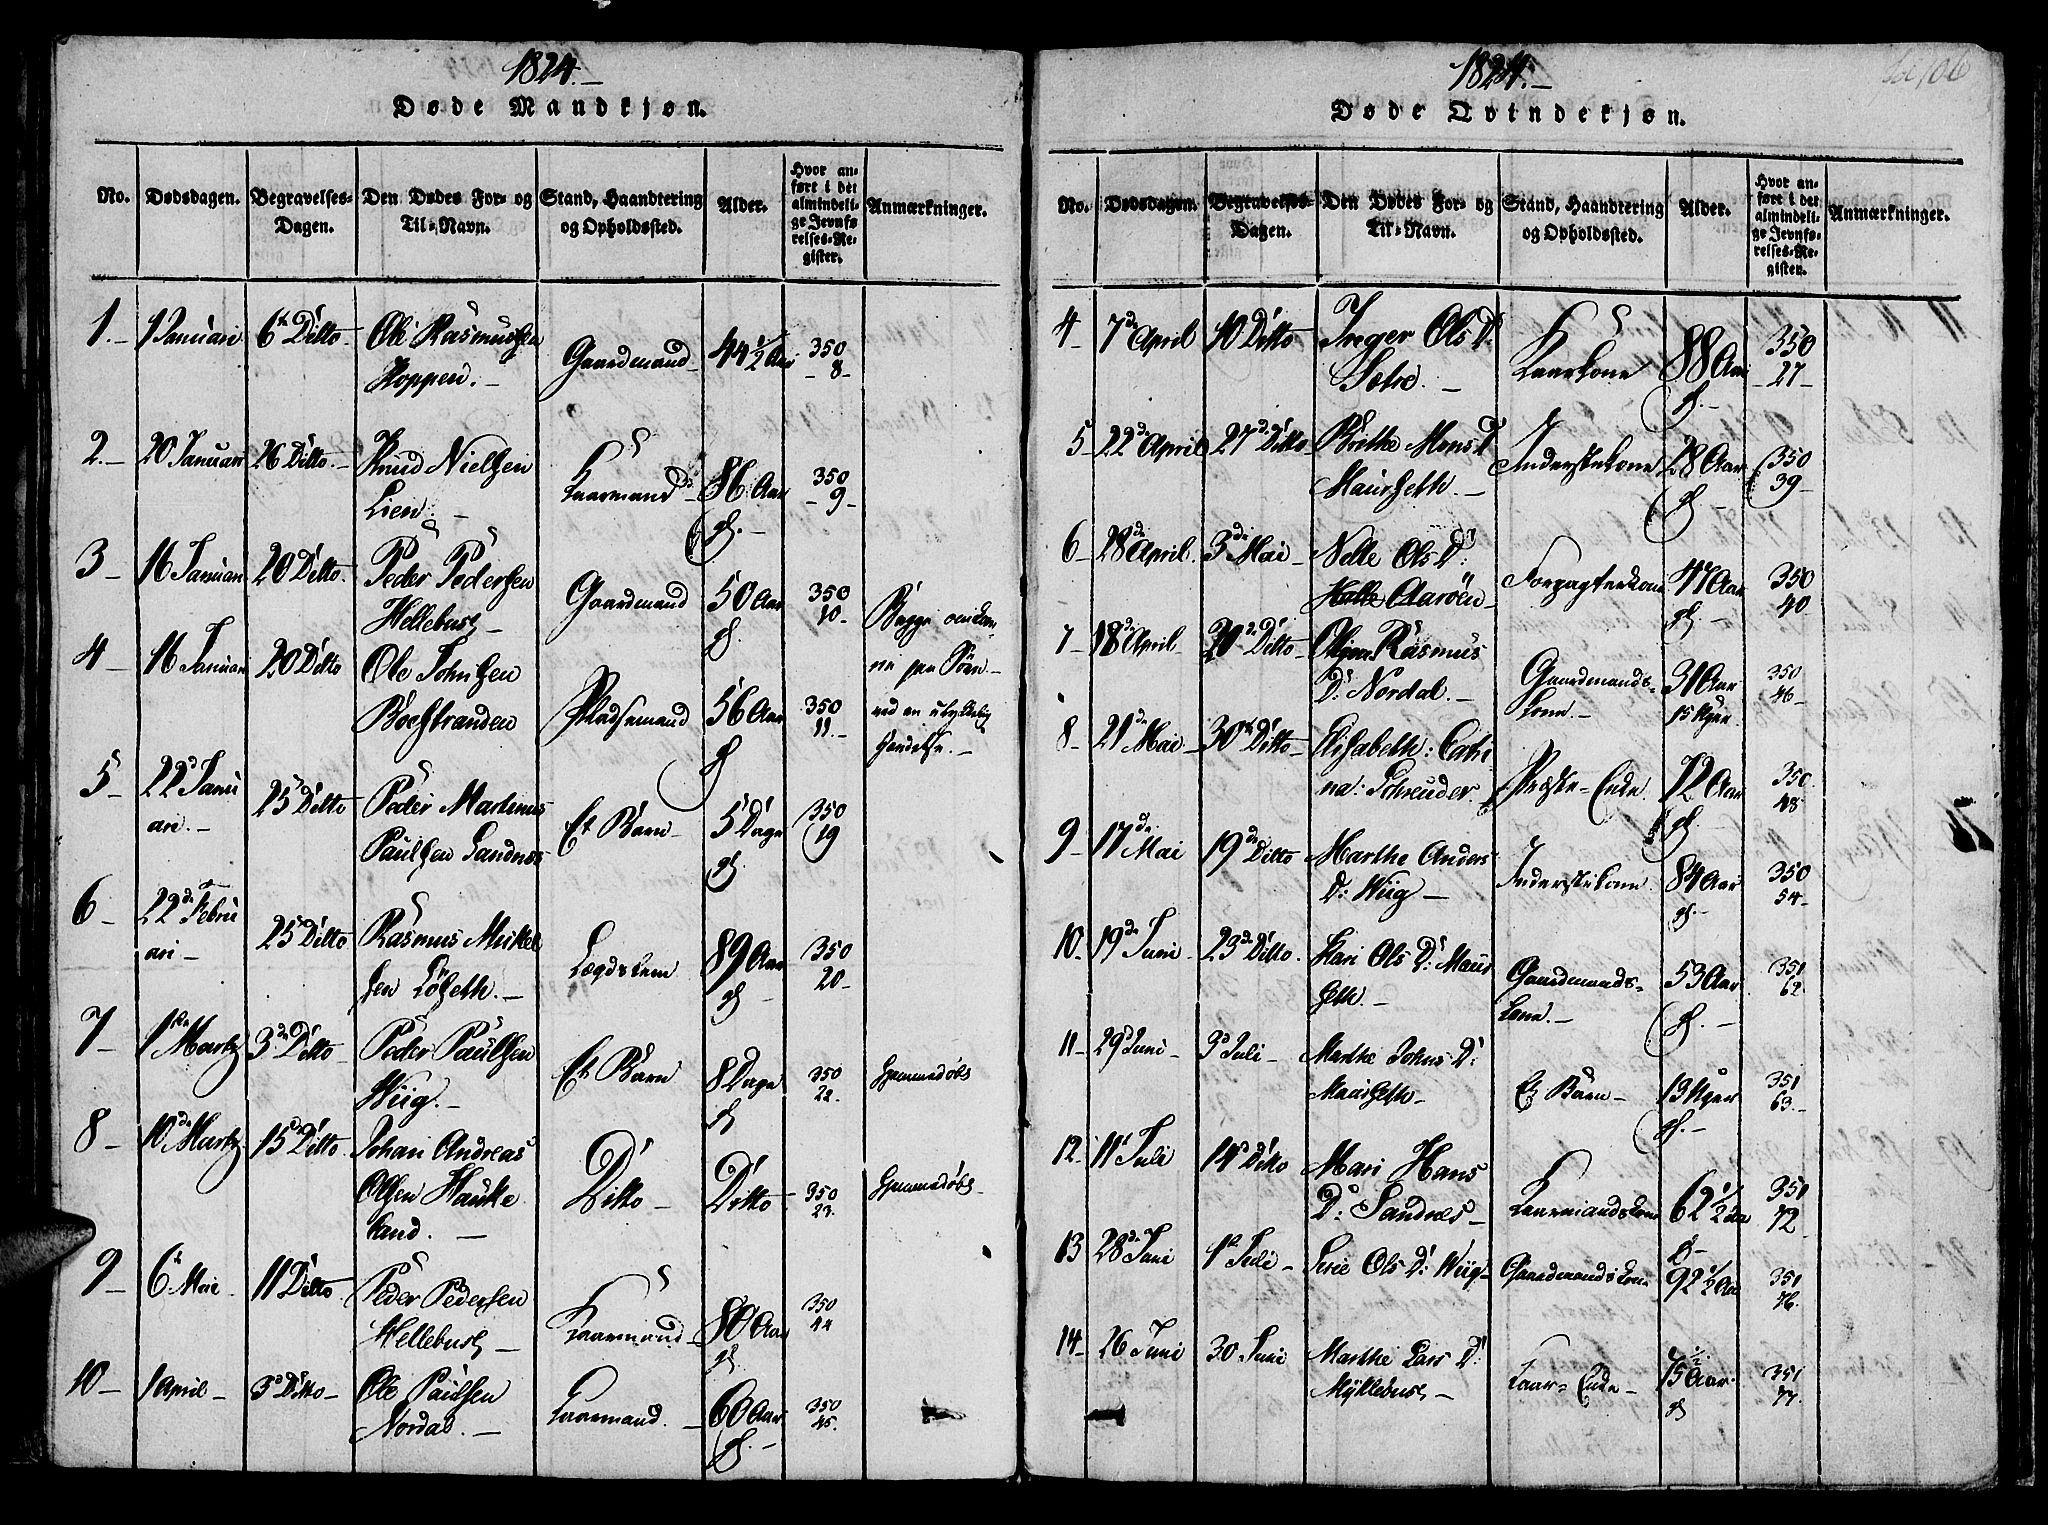 1824.-
Døde Mandkjøn.
No. Dødsdagen. Begravelses-Dagen. Den Dødes For- og Til-Navn. Stand, Haandtering og Opholdssted. Alder. Hvor anført i det almindelige Jevnførelses-Register. Anmærkninger.
1.- 1 Januari 6te Ditto Ole Rasmussen Gaardmand 44 1/2 Aar 350
Hoppen.- - 8 -
2.- 20 Januari 26 Ditto.- Knud Nielsen Kaarmand 86 Aar 350
Lien.- - 9 -
3- 16 Januari 20 Ditto. Peder Pedersen Gaardmand 50 Aar 350 Begge omkom-
Hellebust- 10- ne paa Søen-
4- 16 Januari 20 Ditto Ole Johnsen Pladsemand 56 Aar 350 ved en ulykkelig
Bochstranden 11.- Hændelse.-
5- 22d Janu 25 Ditto Peder Martinus Et Barn- 5 Dage 350
ari.- Paulsen Sandnæs 19
6- 22de Febru 25 Ditto Rasmus Mickel Lægdslem 89 Aar 350
ari- sen Løseth.- 20-
7- 1te Martz 3de Ditto- Peder Paulsen Et Barn 8 Dage 350 Hjemmedøbt
Wiig.- 22.
8- 10de Martz 15de Ditto Johan Andreas Ditto- Ditto- 350 Hjemmedøbt-
Olsen Hauke 23.
land.-
9- 6te Mai. 11 Ditto. Peder Pedersen Kaarmand- 80 Aar 350
Hellebust- 44
10- 1 April- 3d Ditto- Ole Paulsen Kaarmand.- 60 Aar 350
Nordal.- 45.
1824.-
Døde Qvindekjøn.
106
No. Dødsdagen. Begravelses-Dagen. Den Dødes For- og Til-Navn. Stand, Haandtering og Opholdssted. Alder. Hvor anført i det almindelige Jevnførelses-Register. Anmærkninger.
4- 7de April 10 Ditto Inger Ols D: Kaarkone 88 Aar 350
Sætre.- - 27-
5- 22de April 27de Ditto Birethe Mons D Inderstekone 28 Aar 350
Maurseth.- 39-
6- 28de April. 3de Mai- Nelle Ols D: Forpagterkone 47 Aar 350
Aarøen- 40-
7- 18de April- 20de Ditto- Rasmus Gaardmands- 31 Aar 350
D: Nordal.- kone.- 46-
8- 21de Mai- 30te Ditto- Elisabeth: Cathi Præste-Enke. 72 Aar 350.
na: Schreuder. 48-
9- 17de Mai 19de Ditto Marthe Anders Inderstekone. 84 Aar 350
D: Wiig- 54-
10- 19de Juni 23de Ditto. Kari Ols D: Maur Gaardmands- 53 Aar 351
seth.- kone.- 62-
11- 29d Juni- 3d Juli- Marthe Johns D: Et Barn- 13 Uger 351
Maurseth- 63.-
12- 11te Juli 14de Ditto Mari Hans Kaarmandskone 62 1/2 Aar 351
D: Sandnæs- 72-
13 28de Juni 1te Juli- Serie Ols D: Wiig- Gaardmandskone 92 1/2 Aar 351
76.
14- 26 Juni 30 Juni Marthe Lars D: Kaar-Enke- 75 1/2 Aar 351
Myklebust- 77-